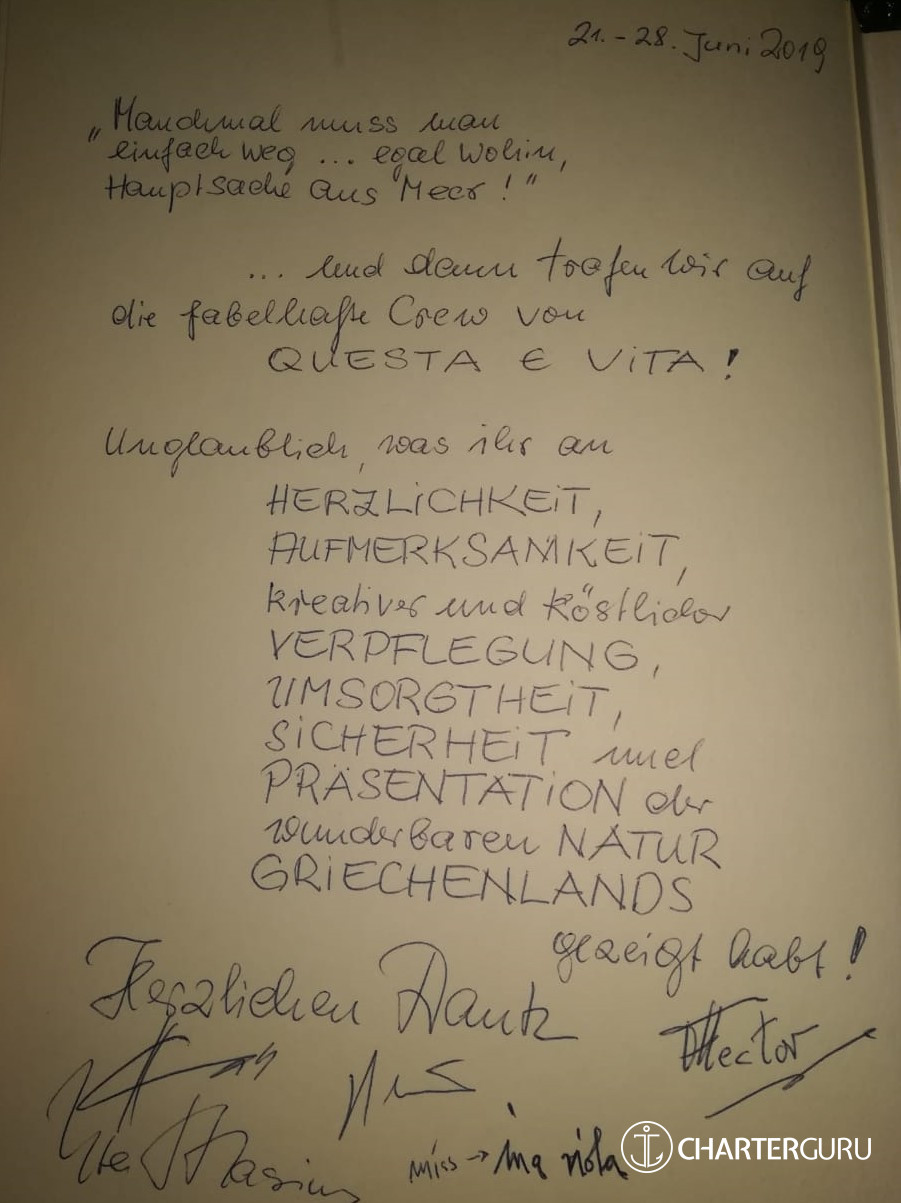 21. - 28. Juni 2019
„Manchmal muss man
einfach weg ... egal wohin,
Hauptsache ans Meer!"
... und dann trafen wir auf
die fabelhafte Crew von
QUESTA E ViTA!
Unglaublich, was ihr an
HERZLiCHKEiT,
AUFMERKSAMKEiT,
kreativer und köstlicher
VERPFLEGUNG,
UMSORGTHEiT,
SiCHERHEiT und
PRÄSENTATiON der
wunderbaren NATUR
GRiECHENLANDS
gezeigt habt!
Herzlichen Dank
Hector
miss →
CHARTERGURU